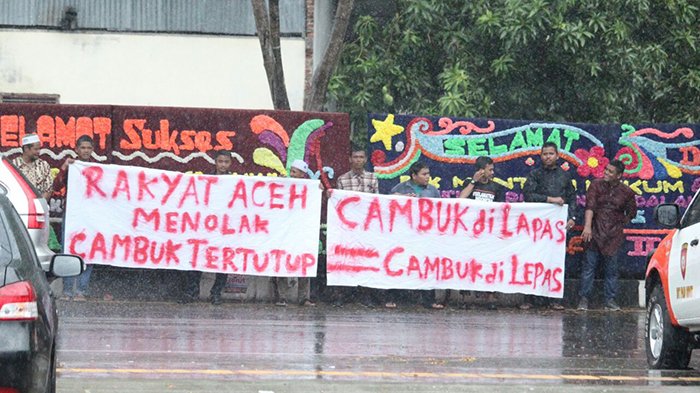 SELAMAT Sukses
SELAMAT
RAKYAT ACEH
MENOLAK
CAMBUK TERTUTUP
CAMBUK di LAPAS
= CAMBUK di LEPAS